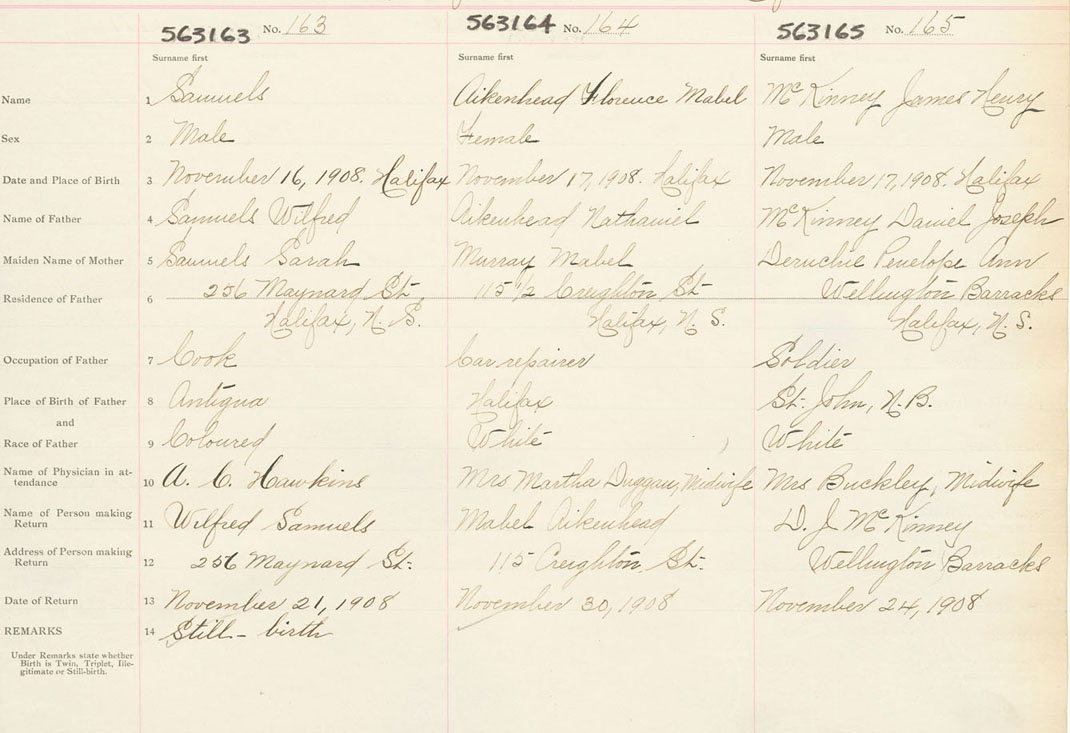 563163 No. 163 563164 No. 164 563165 No. 165
Surname first Surname first Surname first
Name 1 Samuels Aikenhead Florence Mabel McKinney James Henry
Sex 2 Male Female Male
Date and Place of Birth 3 November 16, 1908. Halifax November 17, 1908. Halifax November 17, 1908. Halifax
Name of Father 4 Samuels Wilfred Aikenhead Nathaniel McKinney Daniel Joseph
Maiden Name of Mother 5 Samuels Sarah Murray Mabel Deruchie Penelope Ann
Residence of Father 6 256 Maynard St. 115 1/2 Creighton St. Wellington Barracks
Halifax, N. S. Halifax, N. S. Halifax, N. S.
Occupation of Father 7 Cook Car repairer Soldier
Place of Birth of Father 8 Antigua Halifax St. John, N. B.
and
Race of Father 9 Coloured White White
Name of Physician in at-
tendance 10 A. C. Hawkins Mrs Martha Duggan, Midwife Mrs Buckley, Midwife
Name of Person making
Return 11 Wilfred Samuels Mabel Aikenhead D. J. McKinney
Address of Person making
Return 12 256 Maynard St. 115 Creighton St. Wellington Barracks
Date of Return 13 November 21, 1908 November 30, 1908 November 24, 1908
REMARKS 14 Still-birth
Under Remarks state whether
Birth is Twin, Triplet, Ille-
gitimate or Still-birth.